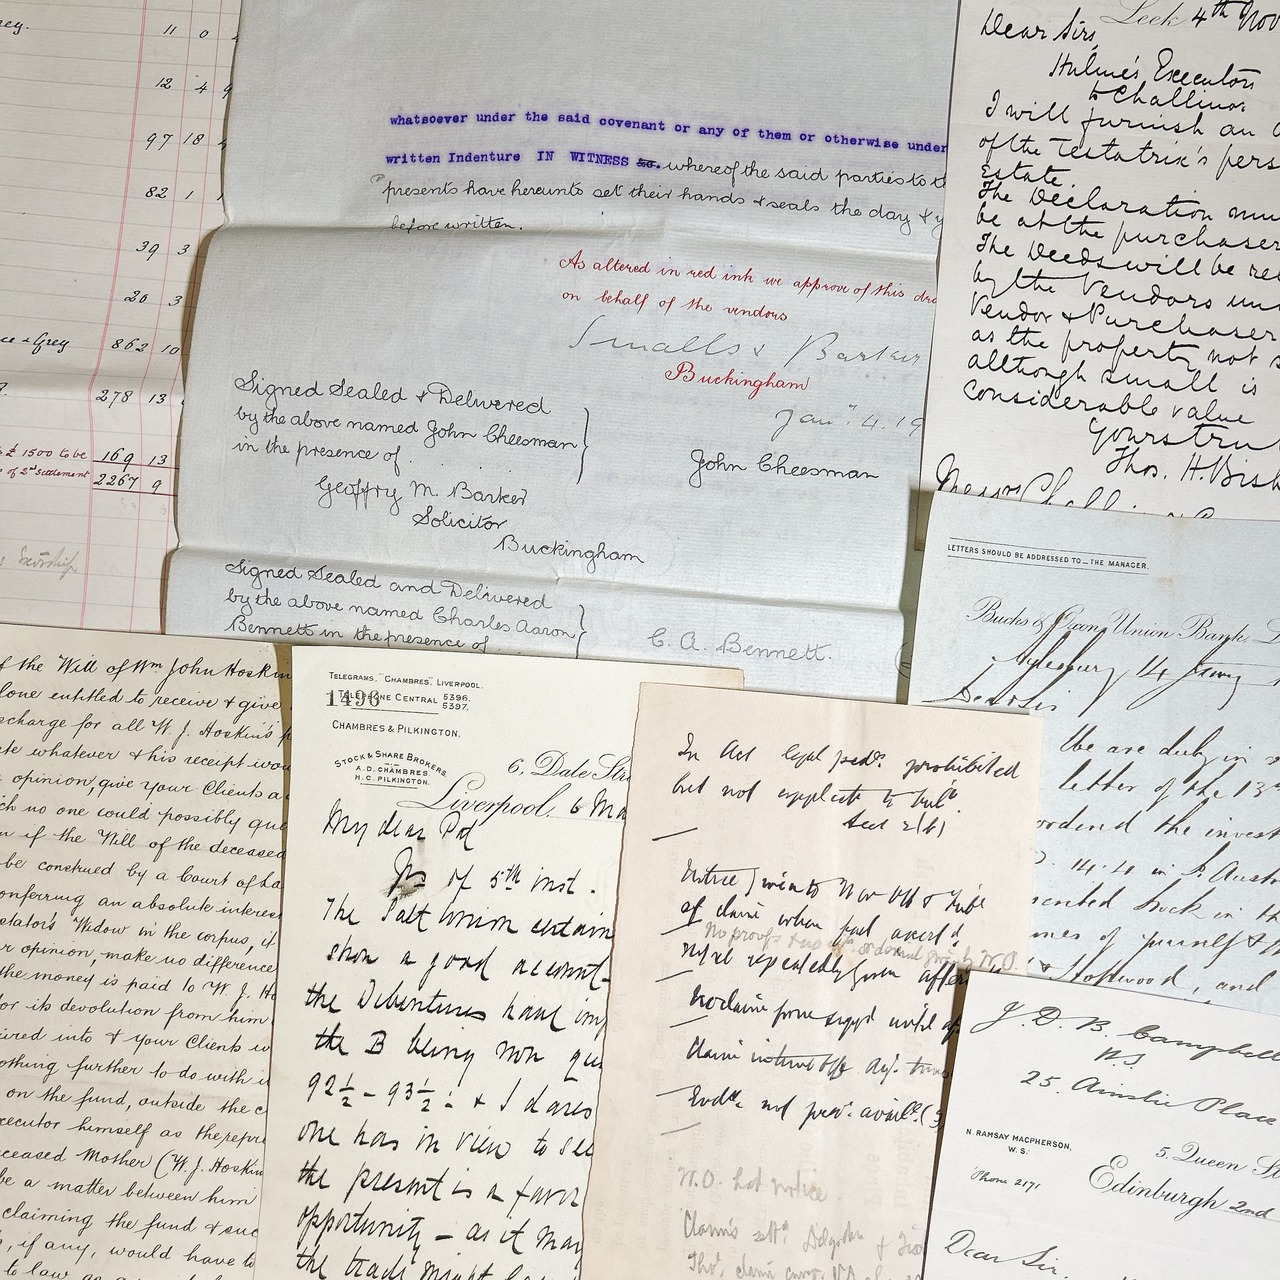 ey.
11 0
12 4 9
97 18
82 1 1
39 3
20 3
ce & Grey 862 10
278 13
£1500 to be 169 13
of 2nd Settlement 2267 9
whatsoever under the said covenant or any of them or otherwise under
written Indenture IN WITNESS &c. whereof the said parties to th
presents have hereunto set their hands & seals the day & y
before written.
As altered in red ink we approve of this dra
on behalf of the vendors
Smalls & Barker
Buckingham
Jany. 4. 19
Signed Sealed & Delivered
by the above named John Cheesman
in the presence of
John Cheesman
Geoffry M. Barker
Solicitor
Buckingham
Signed Sealed and Delivered
by the above named Charles Aaron
Bennett in the presence of
C. A. Bennett.
Leek 4th Nov
Dear Sirs,
Hulme's Executors
to Challinor
I will furnish an
of the Testatrix's pers
Estate.
The Declaration mu
be at the purchaser
The Deeds will be re
by the Vendors un
Vendor & Purchaser
as the property not s
although small is
considerable value
Yours tru
Thos. H. Bish
LETTERS SHOULD BE ADDRESSED TO THE MANAGER.
Bucks & Oxon Union Bank L
Aylesbury 14
Dear Sirs
We are duly in
letter of the 13th
the invest
14.4.0 in S. Austr
stock in th
mes of yourself &
and
of the Will of Wm John Hoskin
lone entitled to receive & give
scharge for all W. J. Hoskin's p
te whatever & his receipt wou
opinion, give your Clients a
ch no one could possibly que
n if the Will of the deceased
be construed by a Court of La
onferring an absolute interes
stator's Widow in the corpus, it
r opinion, make no difference
the money is paid to W. J. Ho
or its devolution from him
ired into & your Clients w
othing further to do with i
on the fund, outside the c
xecutor himself as the repre
ceased Mother (W. J. Hoskin
be a matter between him
claiming the fund & suc
, if any, would have to
to law as a
TELEGRAMS, "CHAMBERS", LIVERPOOL.
1496
TELEPHONE CENTRAL 5396.
5397.
CHAMBERS & PILKINGTON.
STOCK & SHARE BROKERS,
A. D. CHAMBERS.
H. C. PILKINGTON.
6, Dale Stre
Liverpool, 6 Ma
My dear Pat
Yrs of 5th inst.
The Salt Union certain
show a good account
the Debentures have im
the B being now que
92½ - 93½ : & I dare s
one has in view to see
the present is a favor
opportunity - as it may
the trade might
In Act legal prohibited
but not applicable to
Sect 2(6)
Notice
of claim when
No proof
repeatedly given
No claim from
Claim
not prev. avail.
W.O. not notice
Claim's
J. D. B. Campbell
W.S.
25. Ainslie Place
N. RAMSAY MACPHERSON,
W. S.
'Phone 2171
5, Queen St
Edinburgh 2nd
Dear Sir.